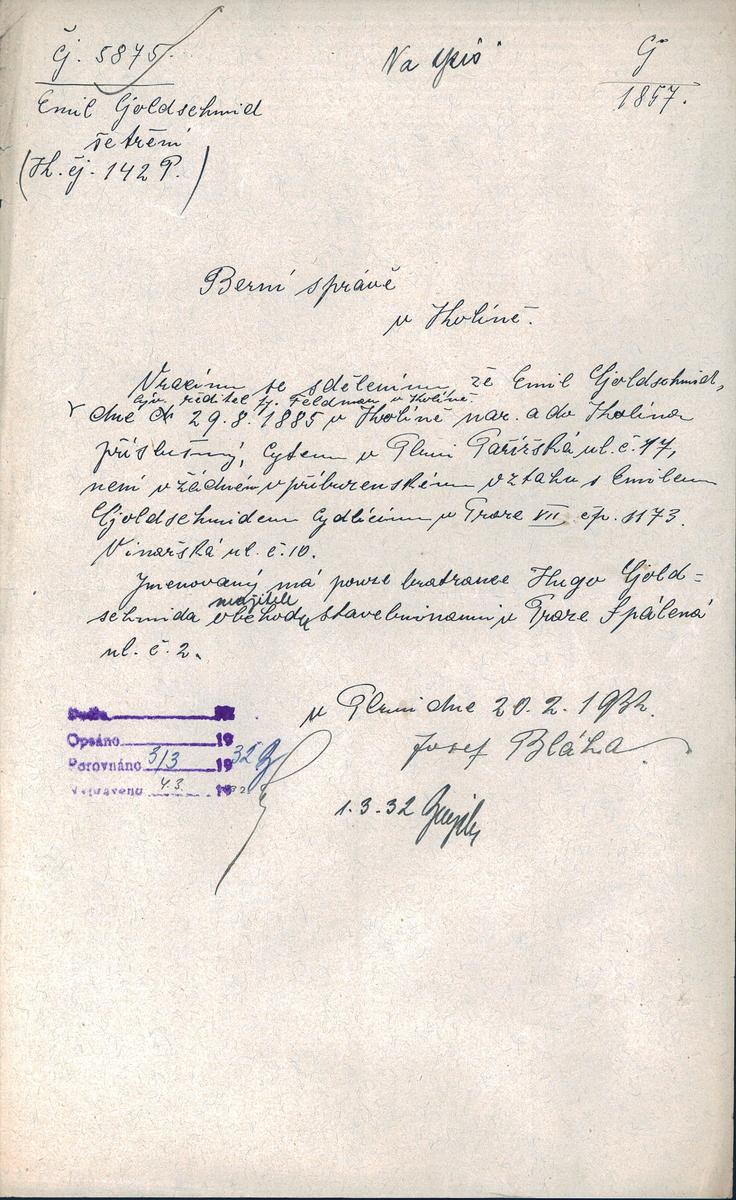 Čj. 5875.
Na spis
G
1857.
Emil Goldschmid
šetření
(K. čj. 142 P.)
Berní správě
v Kolíně.
Vracím se sdělením, že Emil Goldschmid,
býv. ředitel fy. Feldman v Kolíně.
dne 29.8.1885 v Kolíně nar. a do Kolína
příslušný, bytem v Plzni Pařížská ul. č. 17,
není v žádném v příbuzenském vztahu s Emilem
Goldschmidem bydlícím v Praze VII. čp. 1173.
Vinařská ul. č. 10.
Jmenovaný má pouze bratrance Hugo Gold=
majitele
schmida obchodu stavebninami v Praze Spálená
ul. č. 2.
v Plzni dne 20.2.1932.
Josef Bláha
Opsáno 19
Porovnáno 3/3 1932
Vypraveno 4.3. 1932
1.3.32